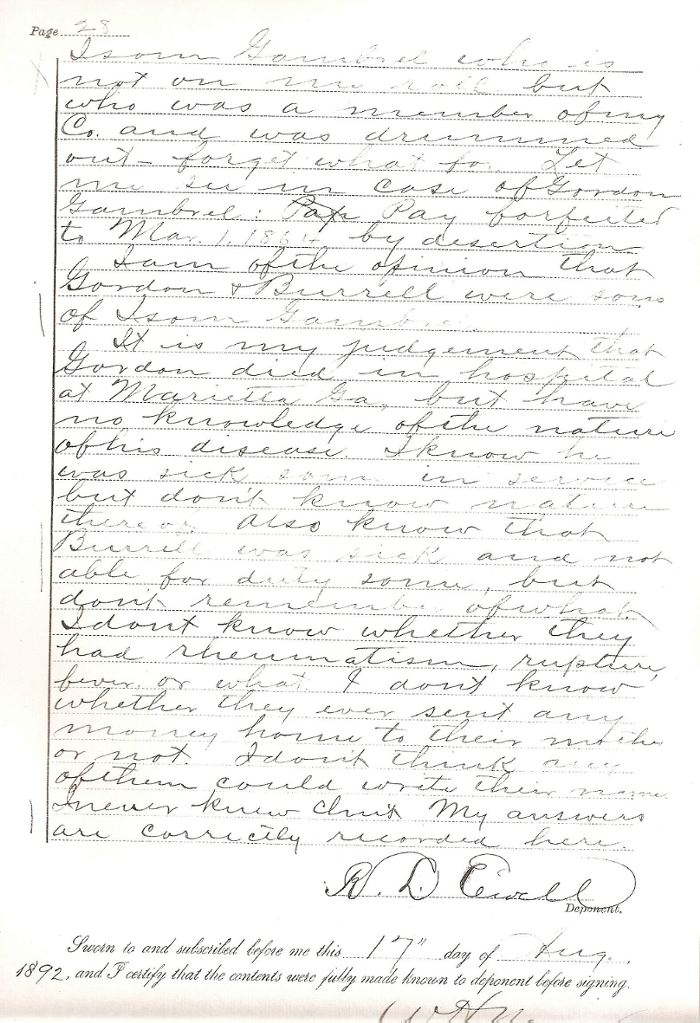 Page 28
Isom Gambrel who is
not on my roll but
who was a member of my
Co. and was drummed
out - forget what for. Let
me see in case of Gordon
Gambrel: Pay forfeited
to Mar. 1. 1864 by desertion
I am of the opinion that
Gordon & Burrell were sons
of Isom Gambrel.
It is my judgement that
Gordon died in hospital
at Marietta Ga, but have
no knowledge of the nature
of his disease. I know he
was sick some in service
but don't know nature
thereof. Also know that
Burrell was sick and not
able for duty some, but
don't remember of what.
I dont know whether they
had rheumatism, rupture,
fever, or what. I dont know
whether they ever sent any
money home to their mother
or not. I don't think any
of them could write their name.
I never knew My answers
are correctly recorded here.
R. D. Ewell
Deponent.
Sworn to and subscribed before me this 17" day of Aug.,
1892, and I certify that the contents were fully made known to deponent before signing.